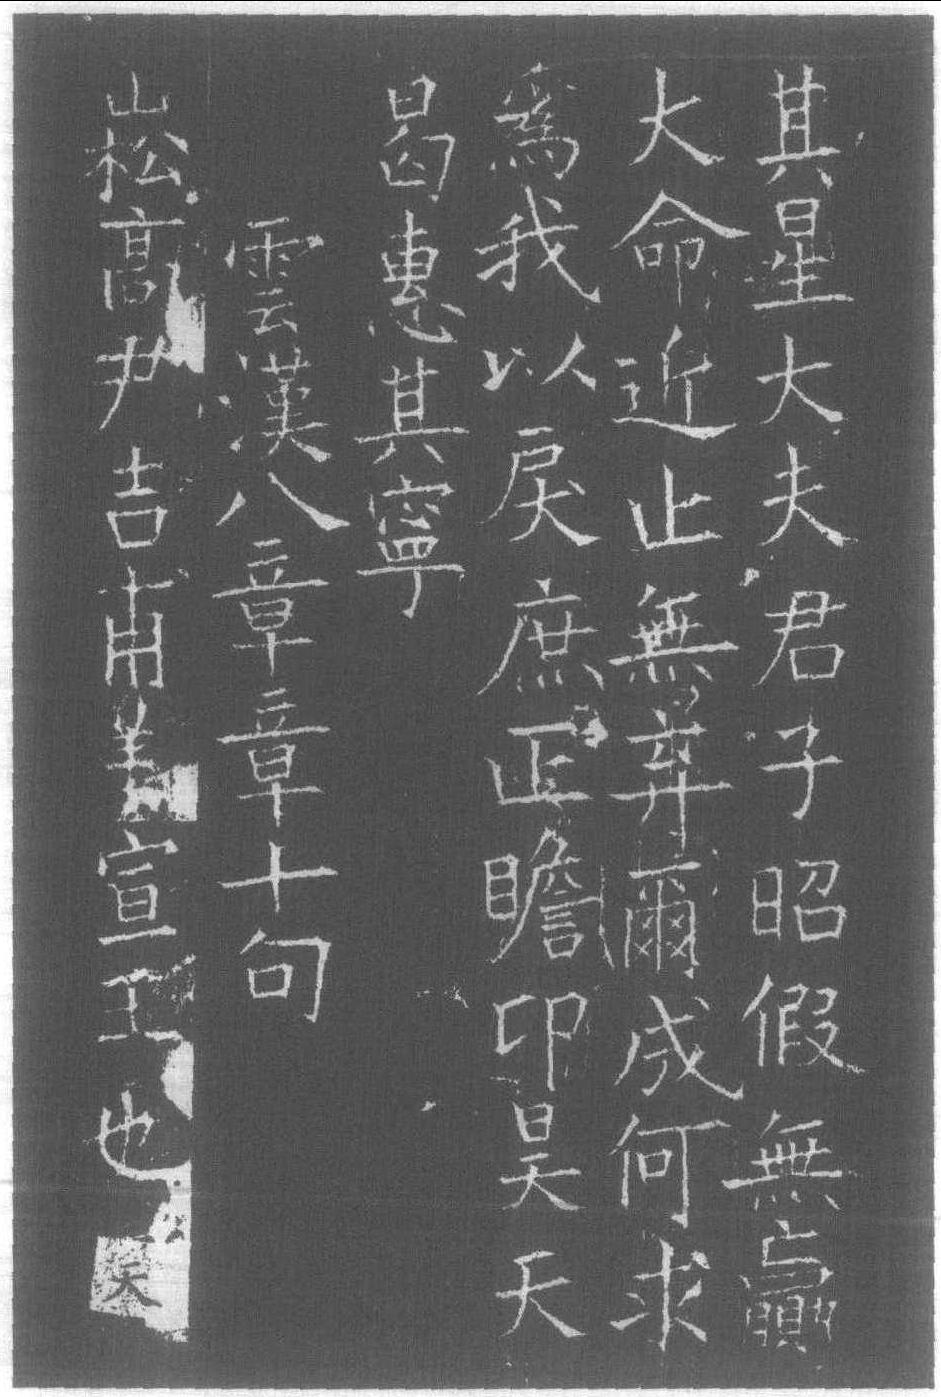 其星大夫君子昭假無贏
大命近止無棄爾成何求
為我以戾庶正瞻卬昊天
曷惠其寧
雲漢八章章十句
崧高尹吉甫美宣王也天